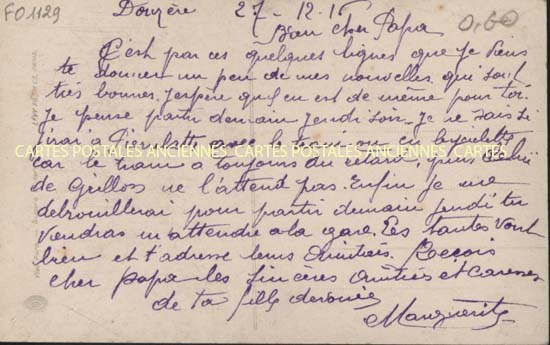 FO1129
Donzère 27-12-15
0,60
Bien cher Papa
C'est par ces quelques lignes que je viens
te donner un peu de mes nouvelles qui sont
très bonnes. J'espère qu'il en est de même pour toi.
Je pense partir demain jeudi soir. Je ne sais si
j'irai à avec le train
CARTES POSTALES ANCIENNES CARTES POSTALES ANCIENNES CARTES POSTALES ANCIENNES
car le tram a toujours du retard, puis celui
de Grillon ne l'attend pas. Enfin je me
debrouillerai pour partir demain jeudi tu
viendras m'attendre a la gare. Les tantes vont
bien et t'adresse leurs Amitiés. Reçois
cher papa les sincères Amitiés et Caresses
de ta fille devouée
Marguerite